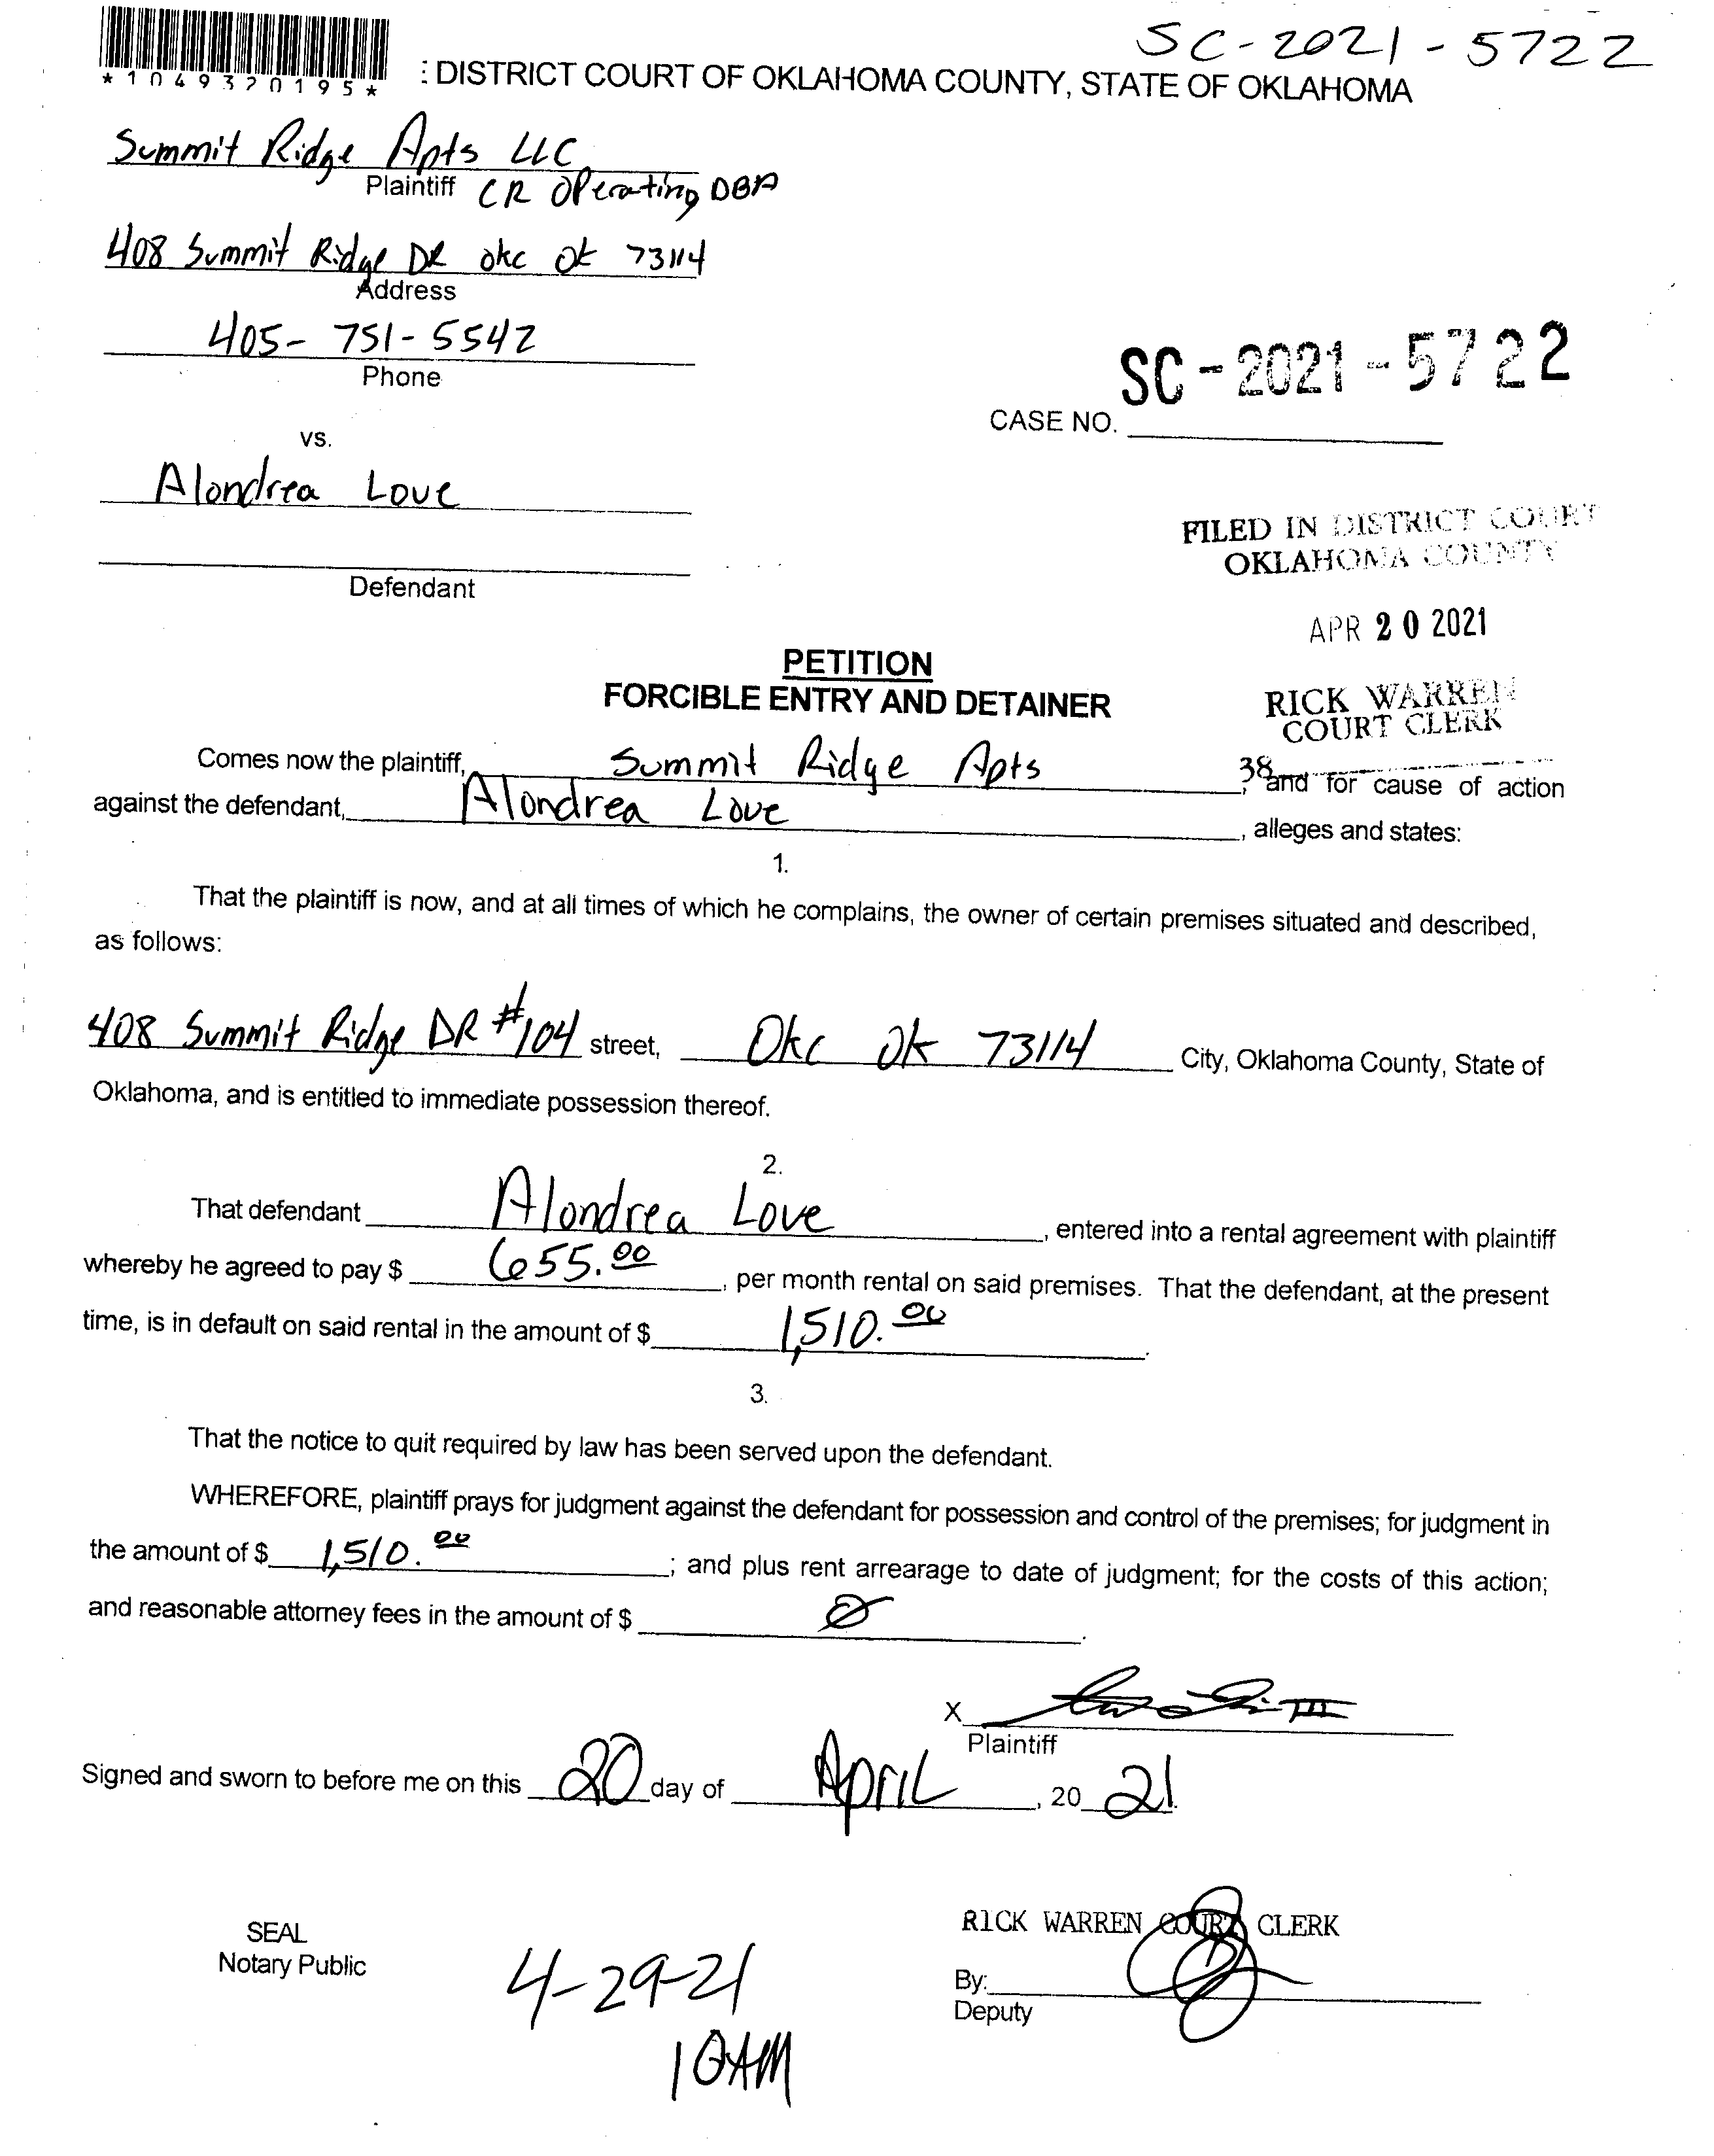 SC-2021-5722
*1049320195*
: DISTRICT COURT OF OKLAHOMA COUNTY, STATE OF OKLAHOMA
Summit Ridge Apts LLC
Plaintiff CR Operating DBA
408 Summit Ridge DR okc ok 73114
Address
405-751-5542
Phone
SC-2021-5722
CASE NO.
vs.
Alondrea Love
FILED IN DISTRICT COURT
OKLAHOMA COUNTY
Defendant
APR 20 2021
PETITION
FORCIBLE ENTRY AND DETAINER
RICK WARREN
COURT CLERK
38
Comes now the plaintiff, Summit Ridge Apts, and for cause of action
against the defendant, Alondrea Love, alleges and states:
1.
That the plaintiff is now, and at all times of which he complains, the owner of certain premises situated and described,
as follows:
408 Summit Ridge DR #104 street, Okc ok 73114 City, Oklahoma County, State of
Oklahoma, and is entitled to immediate possession thereof.
2.
That defendant Alondrea Love, entered into a rental agreement with plaintiff
whereby he agreed to pay $ 655.00, per month rental on said premises. That the defendant, at the present
time, is in default on said rental in the amount of $ 1,510.00.
3.
That the notice to quit required by law has been served upon the defendant.
WHEREFORE, plaintiff prays for judgment against the defendant for possession and control of the premises; for judgment in
the amount of $ 1,510.00; and plus rent arrearage to date of judgment; for the costs of this action;
and reasonable attorney fees in the amount of $ 0.
X
Plaintiff
Signed and sworn to before me on this 20 day of April, 20 21.
RICK WARREN COURT CLERK
SEAL
Notary Public
By:
Deputy
4-29-21
10AM